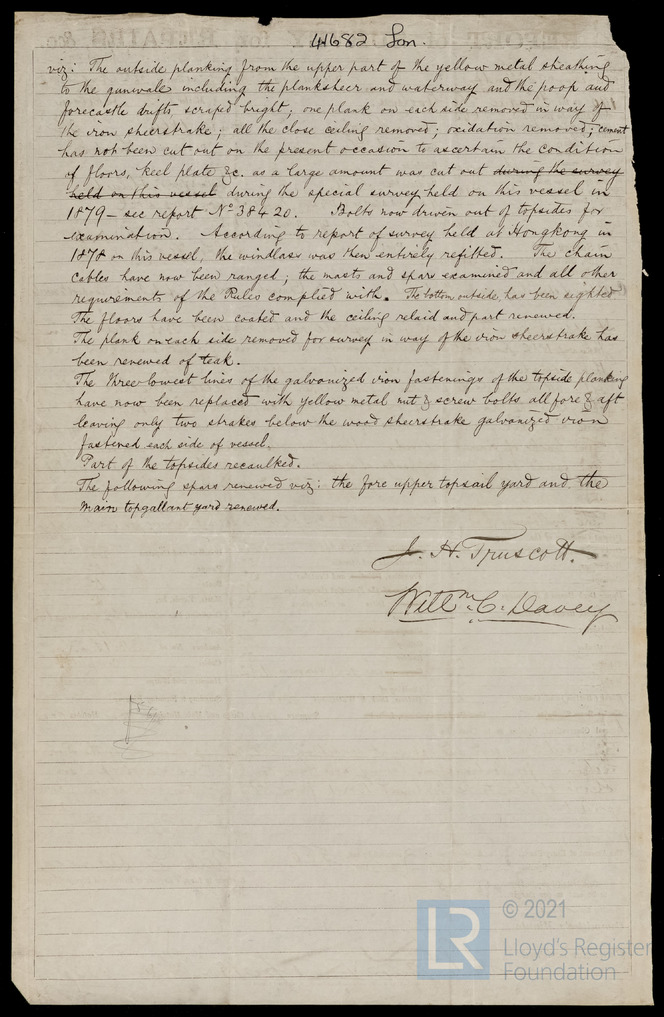 41682 Lon.
viz: The outside planking from the upper part of the yellow metal sheathing
to the gunwale including the planksheer and waterway and the poop and
forecastle drifts scraped bright; one plank on each side removed in way of
the iron sheerstrake; all the close ceiling removed; oxidation removed; cement
has not been cut out on the present occasion to ascertain the condition
of floors, keel plate &c. as a large amount was cut out during the survey
held on this vessel during the special survey held on this vessel in
1879 – see report No 38420. Bolts now driven out of topsides for
examination. According to report of survey held at Hongkong in
1878 on this vessel, the windlass was then entirely refitted. The chain
cables have now been ranged; the masts and spars examined and all other
requirements of the Rules complied with. The bottom outside, has been sighted
The floors have been coated and the ceiling relaid and part renewed.
The plank on each side removed for survey in way of the iron sheerstrake has
been renewed of teak.
The three lowest lines of the galvanized iron fastenings of the topside planking
have now been replaced with yellow metal nut & screw bolts all fore & aft
leaving only two strakes below the wood sheerstrake galvanized iron
fastened each side of vessel.
Part of the topsides recaulked.
The following spars renewed viz: the fore upper topsail yard and the
main topgallant yard renewed.
J. H. Truscott.
Willm. C. Davey
LR © 2021
Lloyd's Register
Foundation